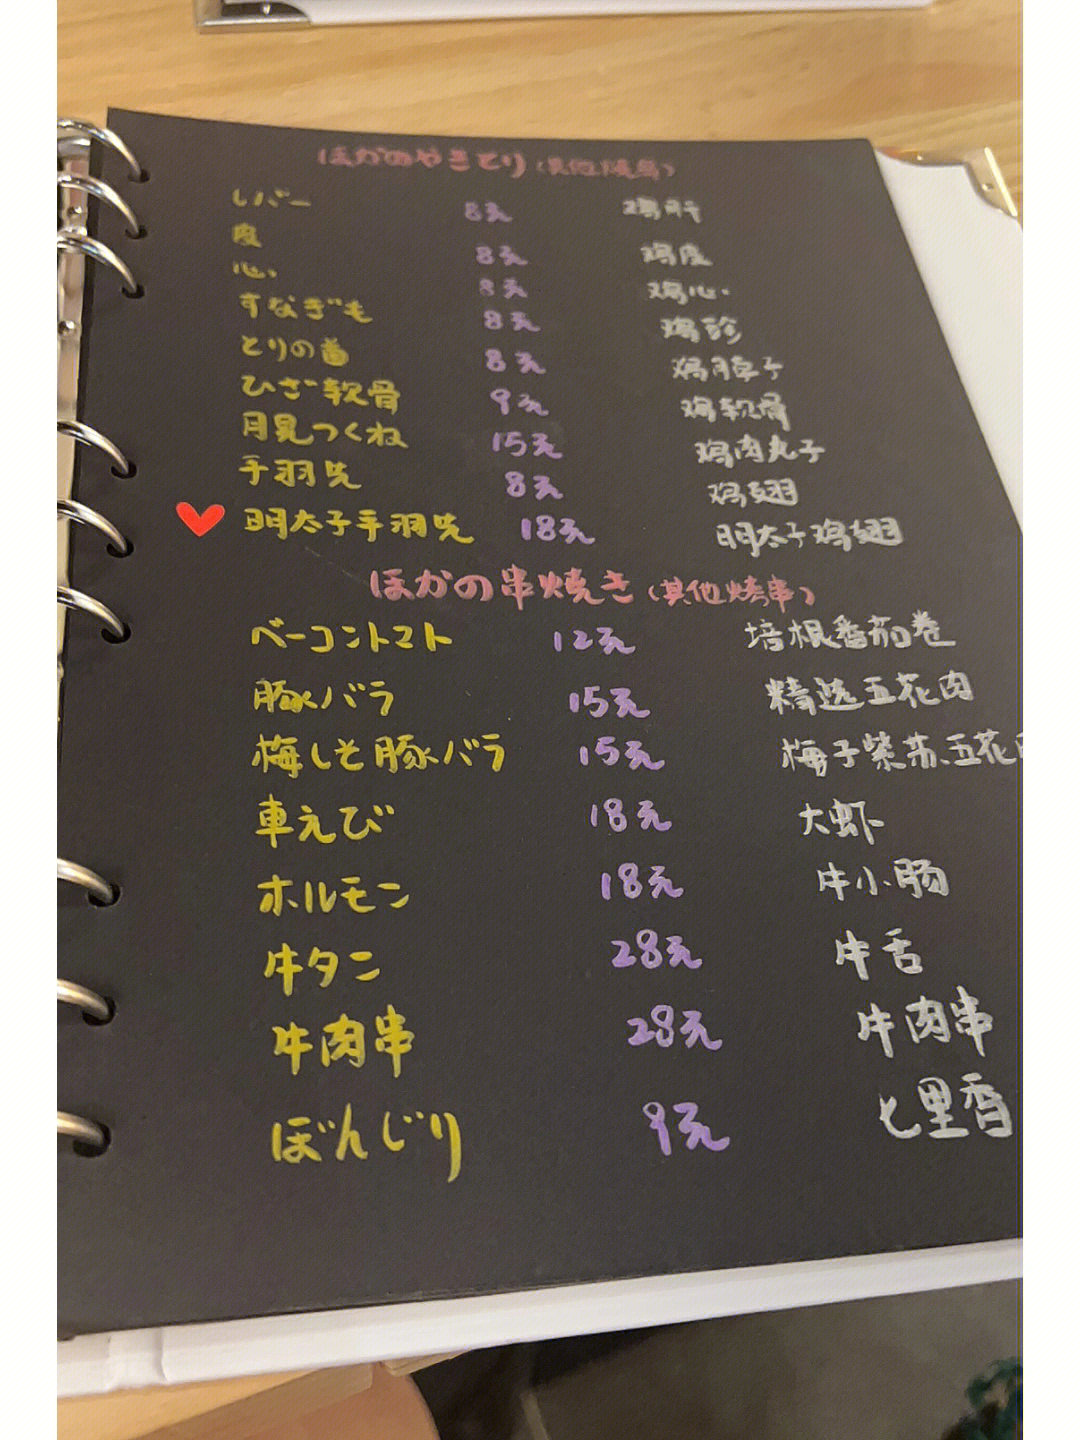 ほかのやきとり（其他烧鸟）
レバー 8元 鸡肝
皮 8元 鸡皮
心 8元 鸡心
すなぎも 8元 鸡珍
とりの首 8元 鸡脖子
ひざ軟骨 9元 鸡软骨
月見つくね 15元 鸡肉丸子
手羽先 8元 鸡翅
明太子手羽先 18元 明太子鸡翅
ほかの串焼き（其他烤串）
ベーコントマト 12元 培根番茄卷
豚バラ 15元 精选五花肉
梅しそ豚バラ 15元 梅子紫苏五花肉
車えび 18元 大虾
ホルモン 18元 牛小肠
牛タン 28元 牛舌
牛肉串 28元 牛肉串
ぼんじり 9元 七里香